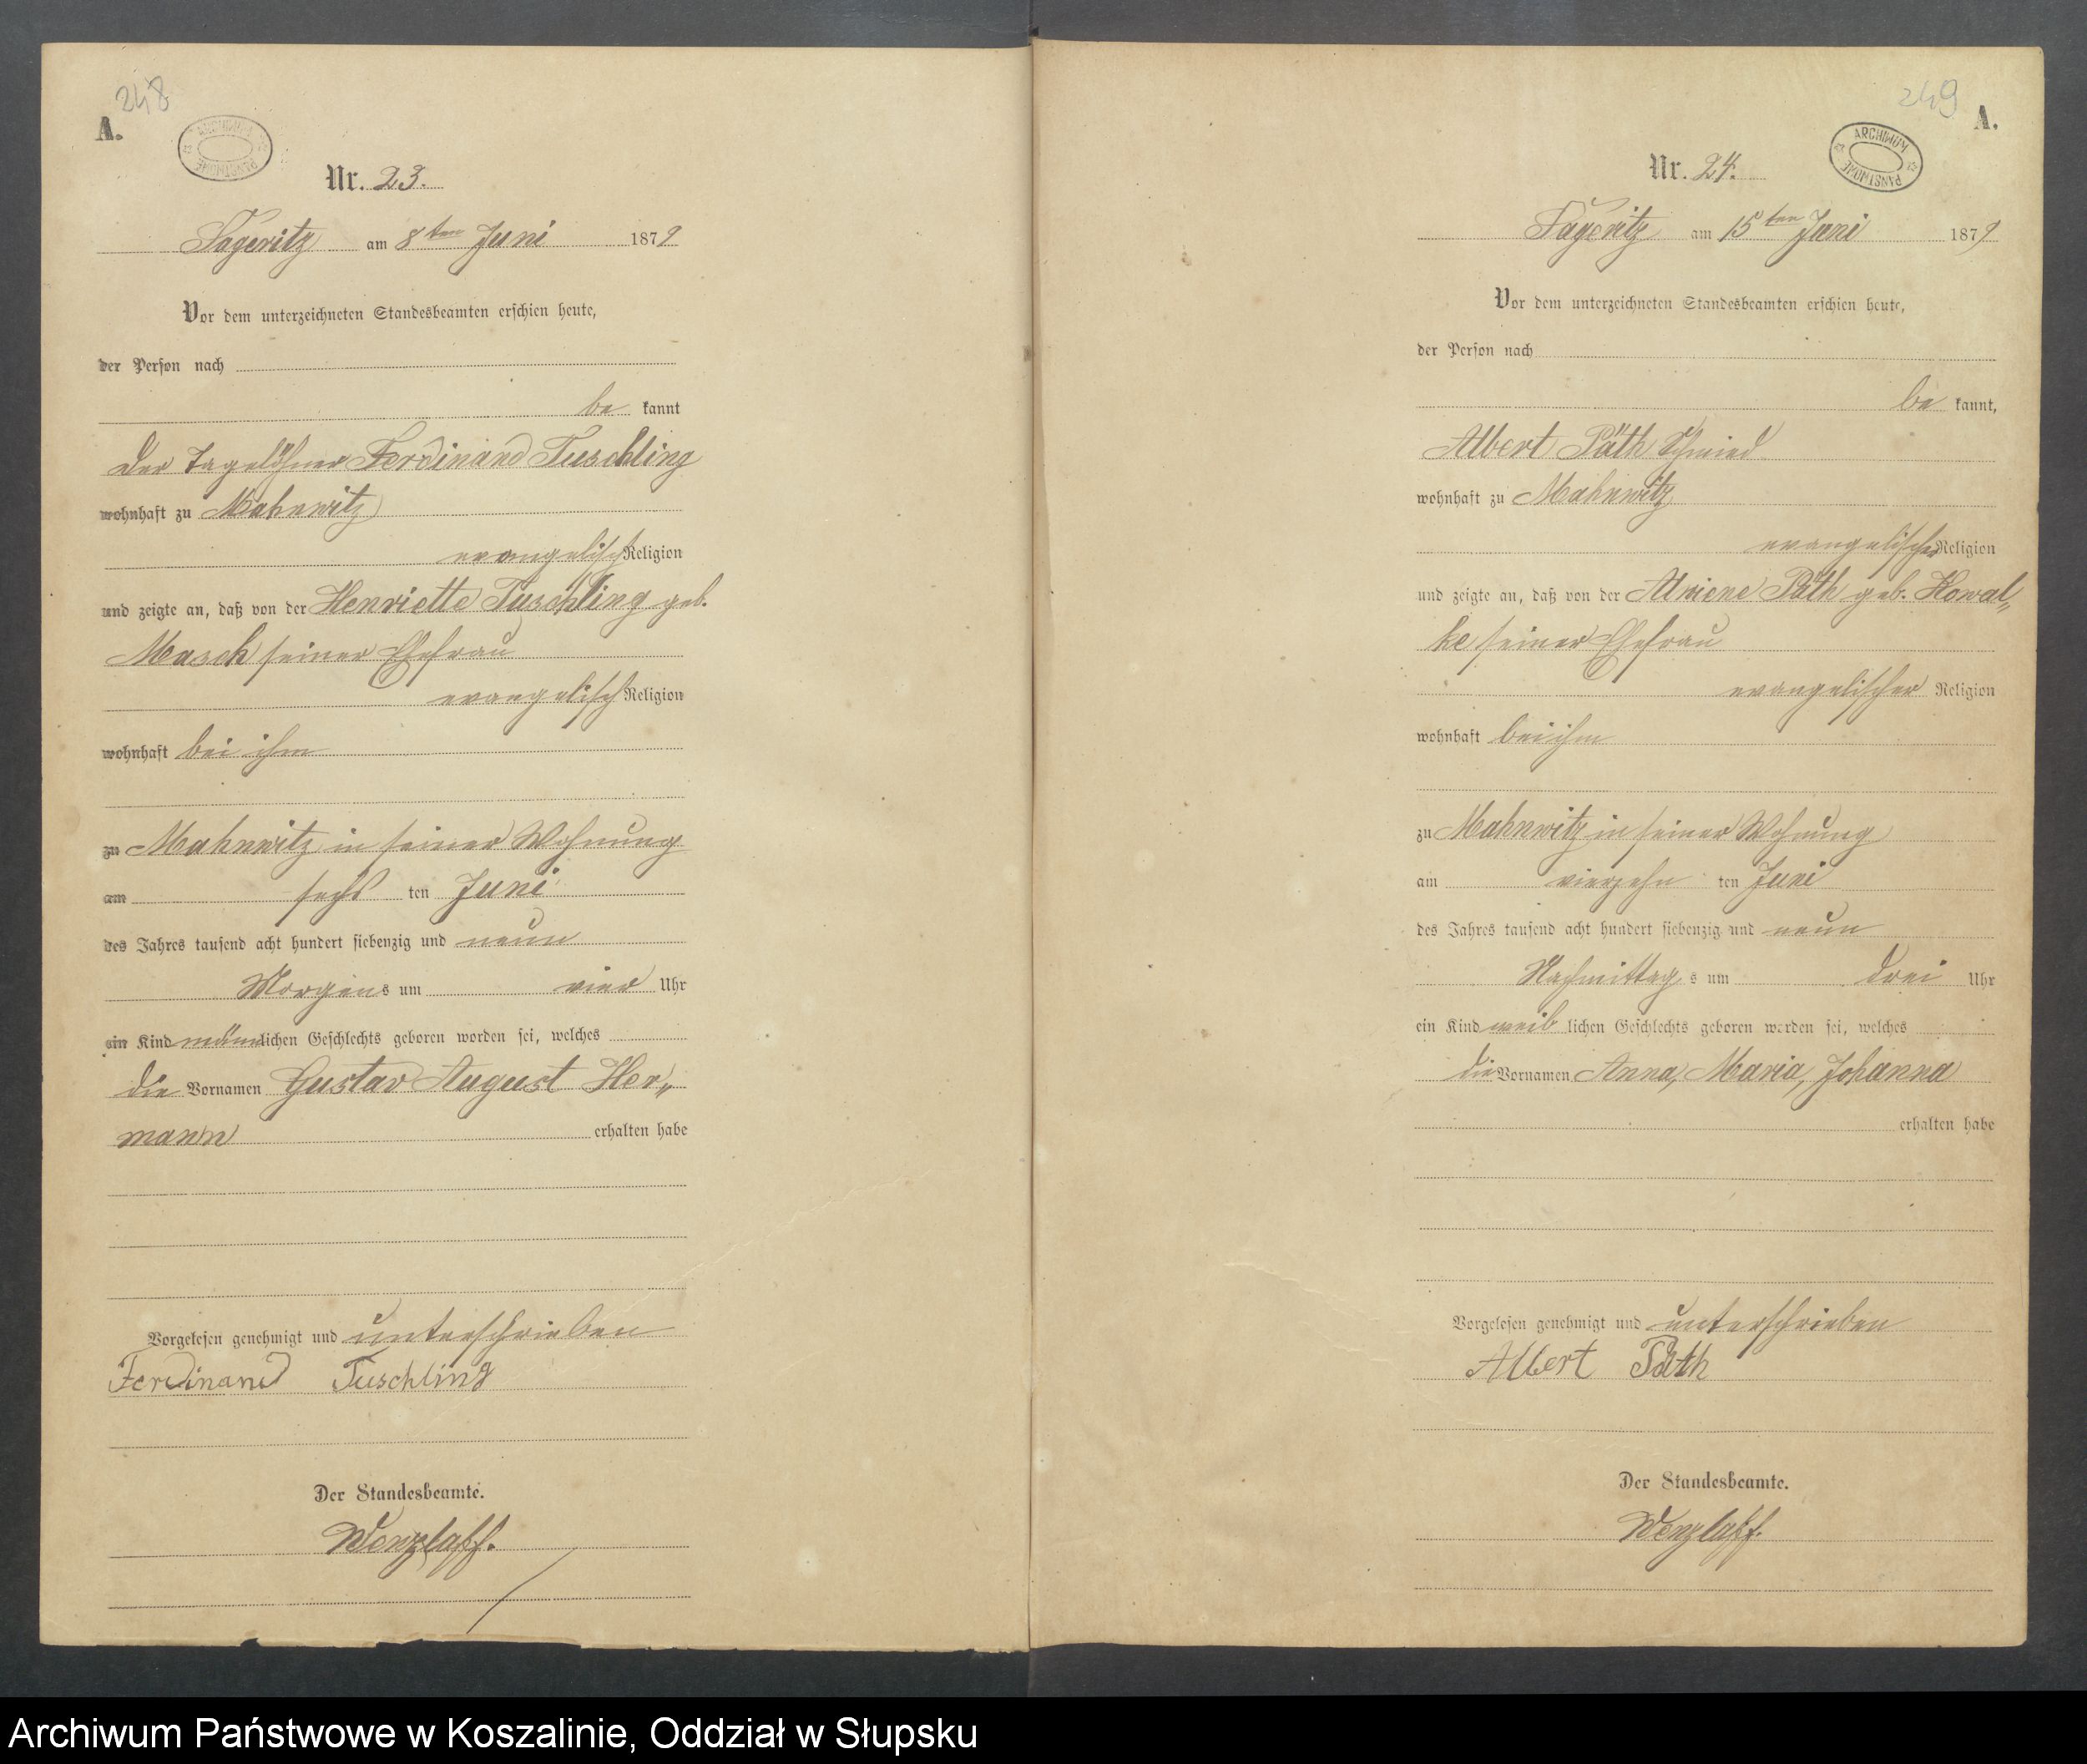 248
A.
ARCHIWUM PAŃSTWOWE
Nr. 23.
Fageritz am 8ten Juni 1879
Vor dem unterzeichneten Standesbeamten erschien heute,
der Person nach
be kannt
Der Tagelöhner Ferdinand Tuschling
wohnhaft zu Mahnwitz
evangelisch Religion
und zeigte an, daß von der Henriette Tuschling geb.
Masch seiner Ehefrau
evangelisch Religion
wohnhaft bei ihm
zu Mahnwitz in seiner Wohnung
am sechs ten Juni
des Jahres tausend acht hundert siebenzig und neun
Morgens um vier Uhr
ein Kind männlichen Geschlechts geboren worden sei, welches
die Vornamen Gustav August Her„
mann erhalten habe
Vorgelesen genehmigt und unterschrieben
Ferdinand Tuschling
Der Standesbeamte.
Wenzlaff.
249
A.
ARCHIWUM PAŃSTWOWE
Nr. 24.
Fageritz am 15ten Juni 1879
Vor dem unterzeichneten Standesbeamten erschien heute,
der Person nach
be kannt,
Albert Päth Schmied
wohnhaft zu Mahnwitz
evangelischer Religion
und zeigte an, daß von der Alwiene Päth geb. Kowal„
ke seiner Ehefrau
evangelischer Religion
wohnhaft bei ihm
zu Mahnwitz in seiner Wohnung
am vierzehn ten Juni
des Jahres tausend acht hundert siebenzig und neun
Nachmittag s um drei Uhr
ein Kind weib lichen Geschlechts geboren worden sei, welches
die Vornamen Anna, Maria, Johanna
erhalten habe
Vorgelesen genehmigt und unterschrieben
Albert Päth
Der Standesbeamte.
Wenzlaff.
Archiwum Państwowe w Koszalinie, Oddział w Słupsku